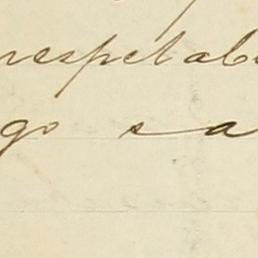 respetab
go sa